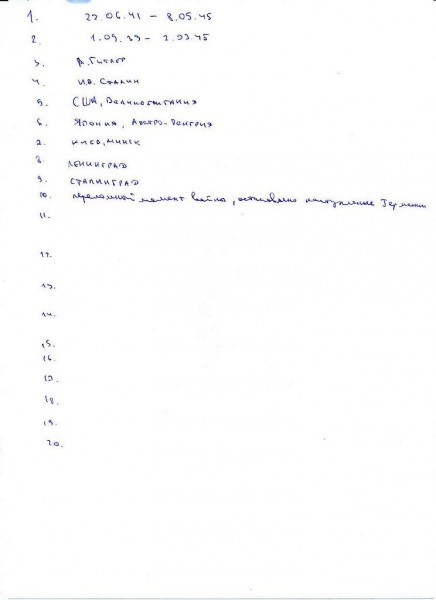 1. 22.06.41 – 8.05.45
2. 1.09.39 – 2.09.45
3. А. Гитлер
4. И.В. Сталин
5. США, Великобритания
6. Япония, Австро-Венгрия
7. Киев, Минск
8. Ленинград
9. Сталинград
10. переломный момент войны, остановлено наступление Германии
11.
12.
13.
14.
15.
16.
17.
18.
19.
20.